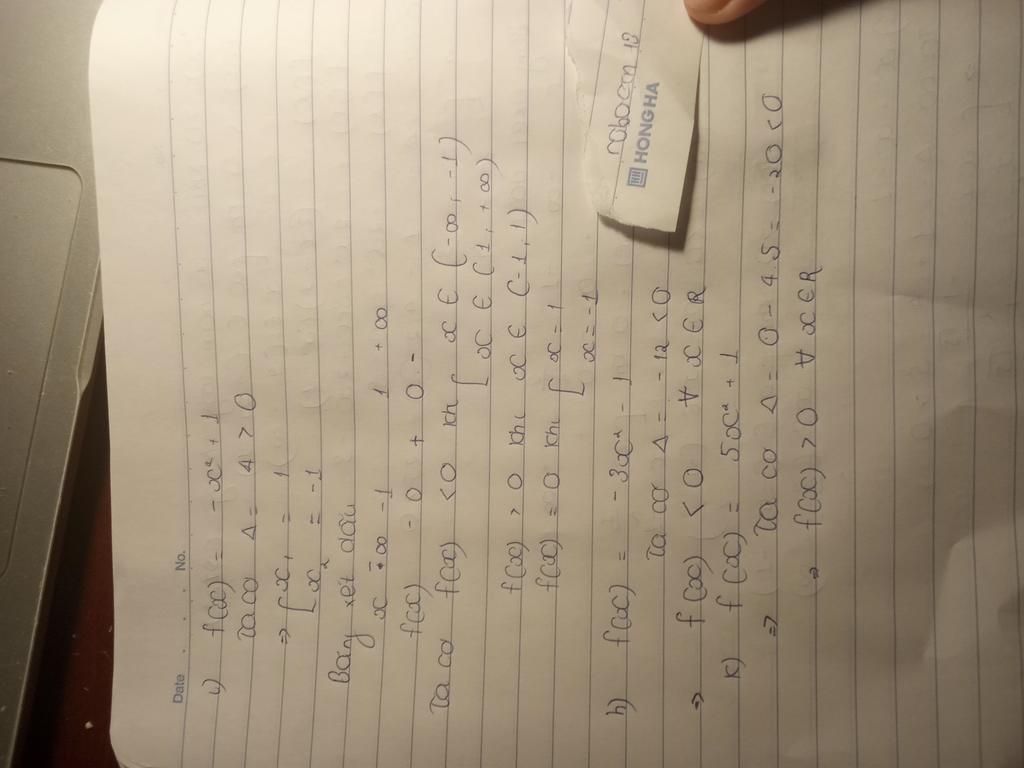 Date . . . No.
i) f(x) = - x² + 1
Ta có Δ = 4 > 0
⇒ [ x₁ = 1
[ x₂ = -1
Bảng xét dấu
x -∞ -1 1 +∞
f(x) - 0 + 0 -
Ta có f(x) < 0 khi [ x ∈ (-∞, -1)
[ x ∈ (1, +∞)
f(x) > 0 khi x ∈ (-1, 1)
f(x) = 0 khi [ x = 1
[ x = -1
h) f(x) = - 3x² - 1
Ta có Δ = -12 < 0
⇒ f(x) < 0 ∀ x ∈ R
k) f(x) = 5x² + 1
⇒ Ta có Δ = 0 - 4.5 = -20 < 0
⇒ f(x) > 0 ∀ x ∈ R
HONGHA